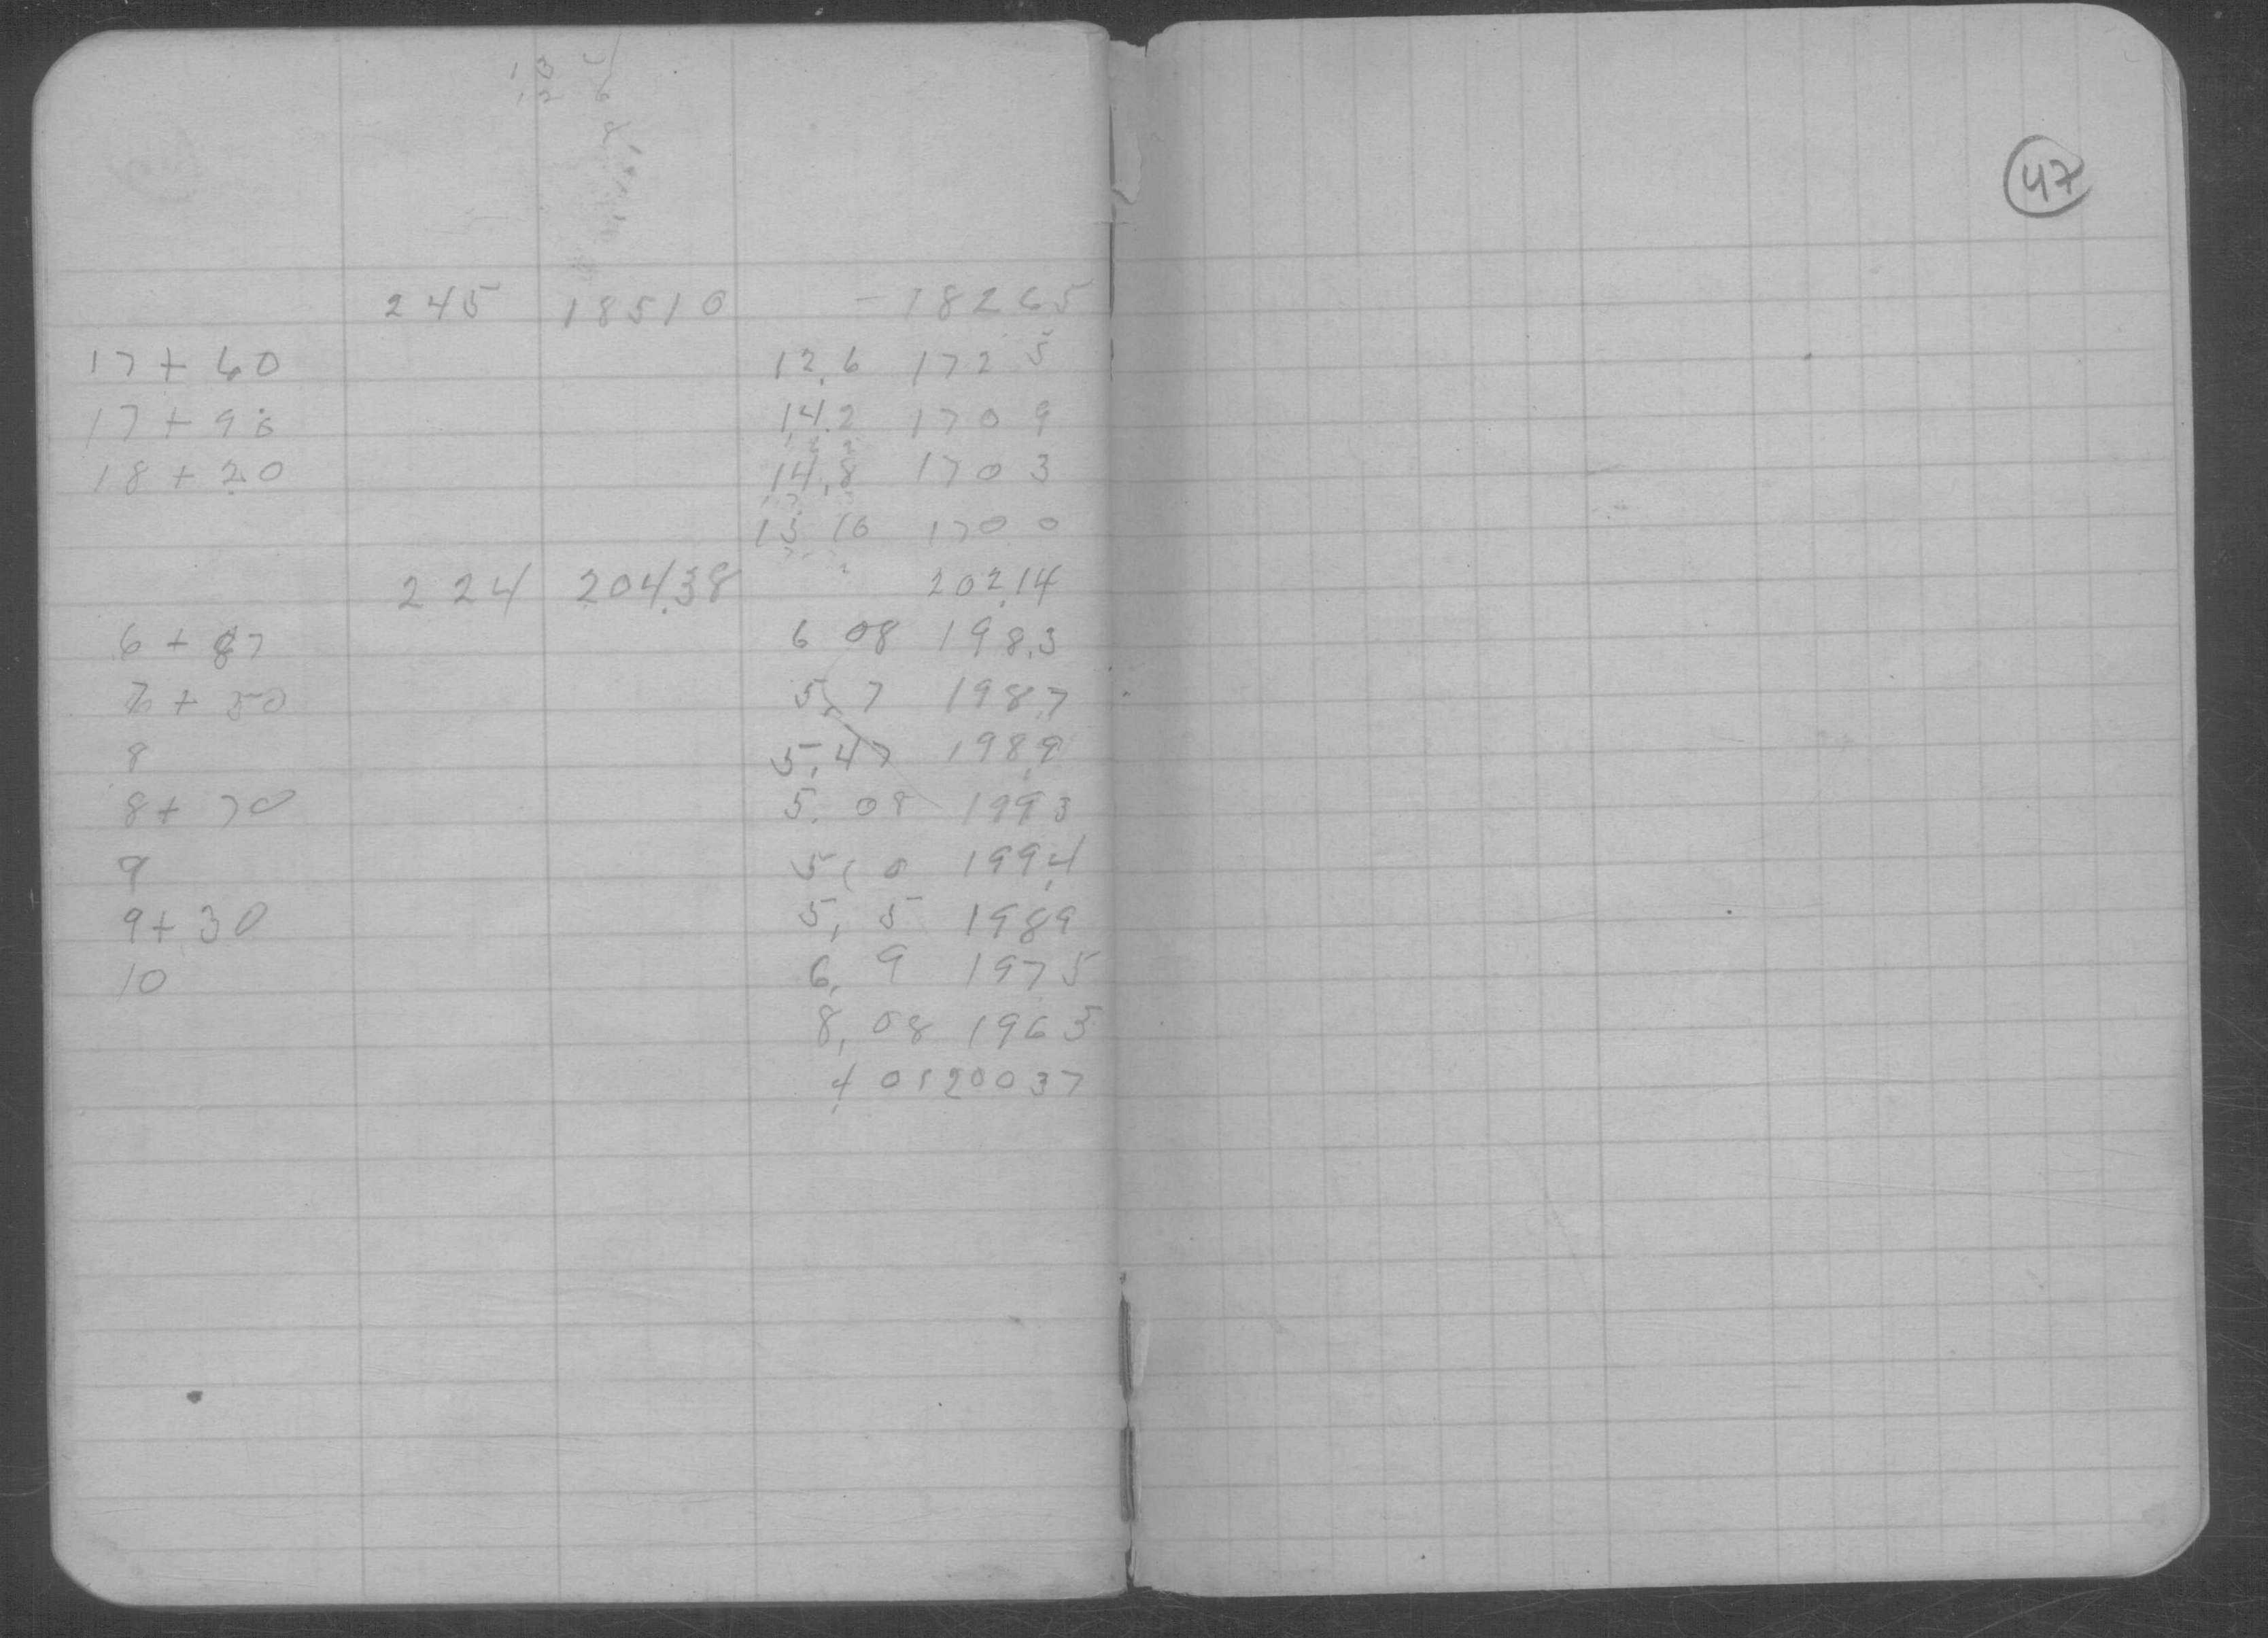 47
245 18510 - 18265
17 + 60 12.6 172 5
17 + 96 14.2 170 9
18 + 20 14.8 170 3
15 16 170 0
224 204.38 202.14
6 + 87 6 08 198.3
7 + 50 5, 7 198.7
8 5.47 198.9
8 + 70 5. 08 1993
9 5, 0 199.4
9 + 30 5, 5 1989
10 6, 9 197 5
8, 08 196 5
4 08 20037